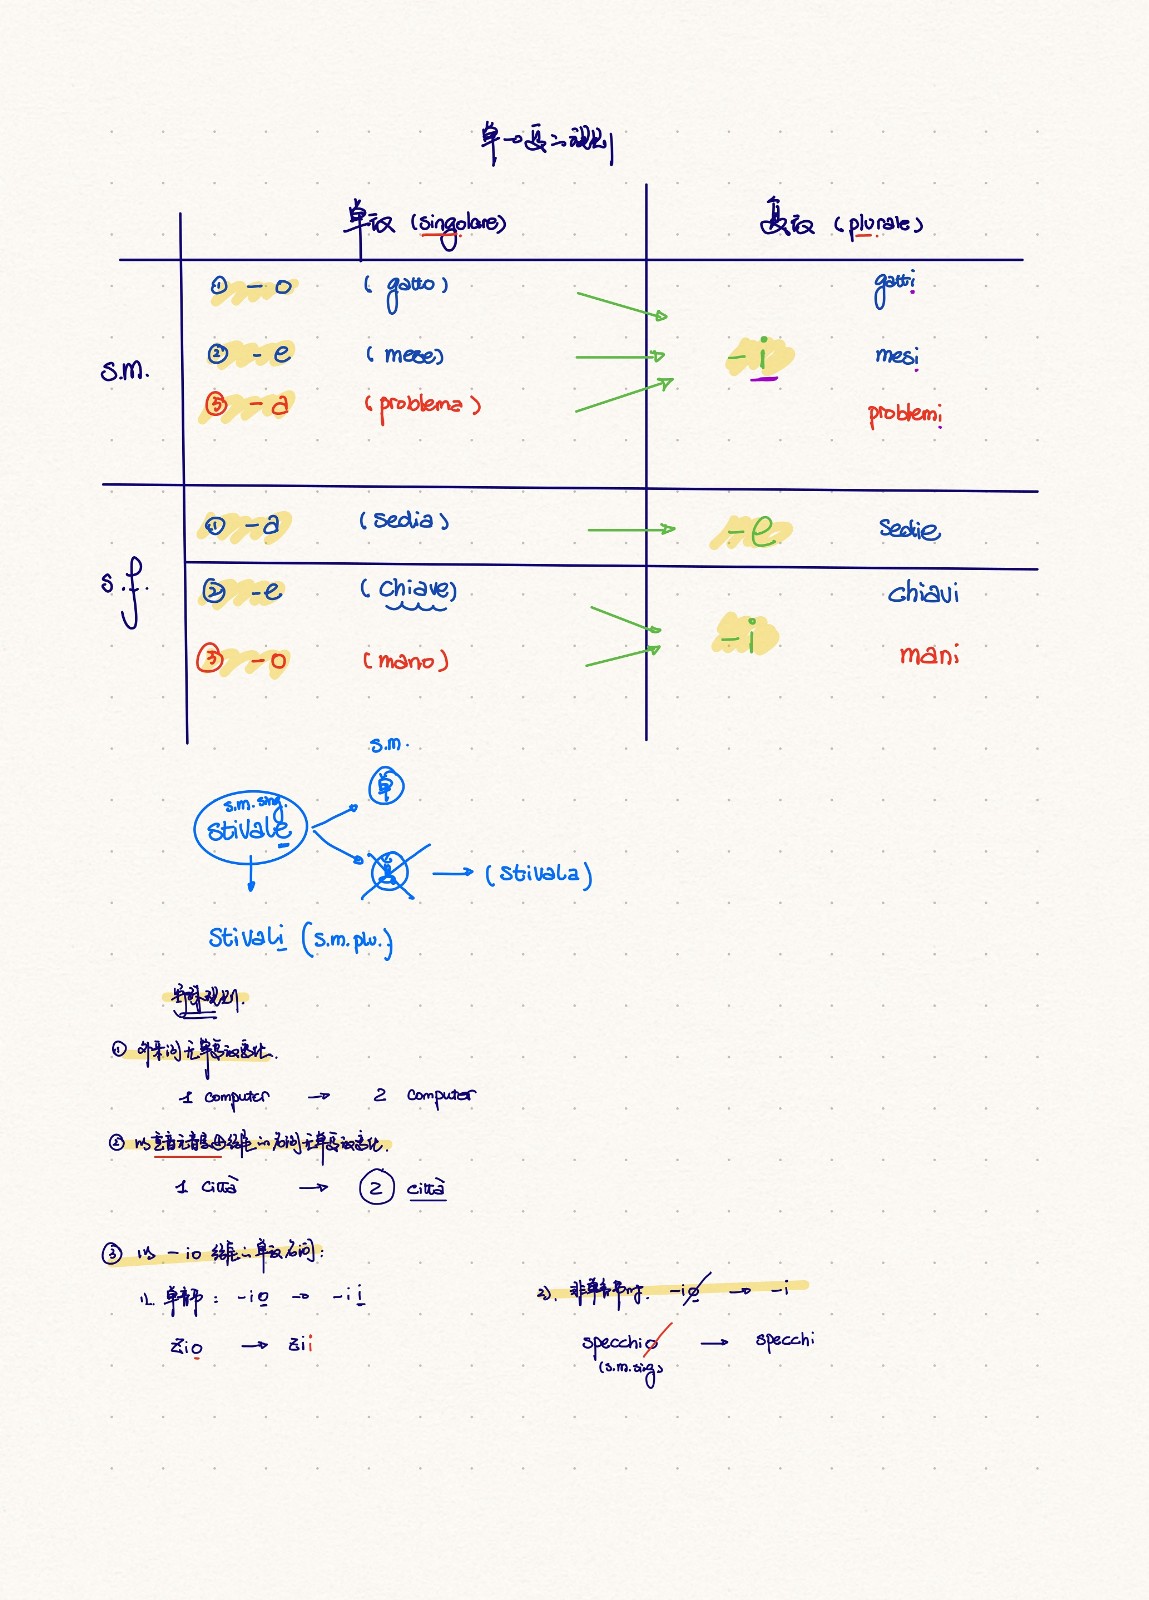 单→复の规则
单数 (singolare)
复数 (plurale)
s.m.
① -o (gatto) gatti
② -e (mese) -i mesi
③ -a (problema) problemi
s.f.
① -a (sedia) -e sedie
② -e (chiave) chiavi
③ -o (mano) -i mani
s.m.
单
s.m.sing.
stivale
→ (stivala)
stivali (s.m.plu.)
规则.
① 外来词无单复数变化.
1 computer → 2 computer
② 以重音元音字母结尾の名词无单复数变化.
1 città → 2 città
③ 以 -io 结尾の单数名词:
1). 单音节: -io → -ii
zio → zii
2). 非单音节时. -io → -i
specchio → specchi
(s.m.sing)